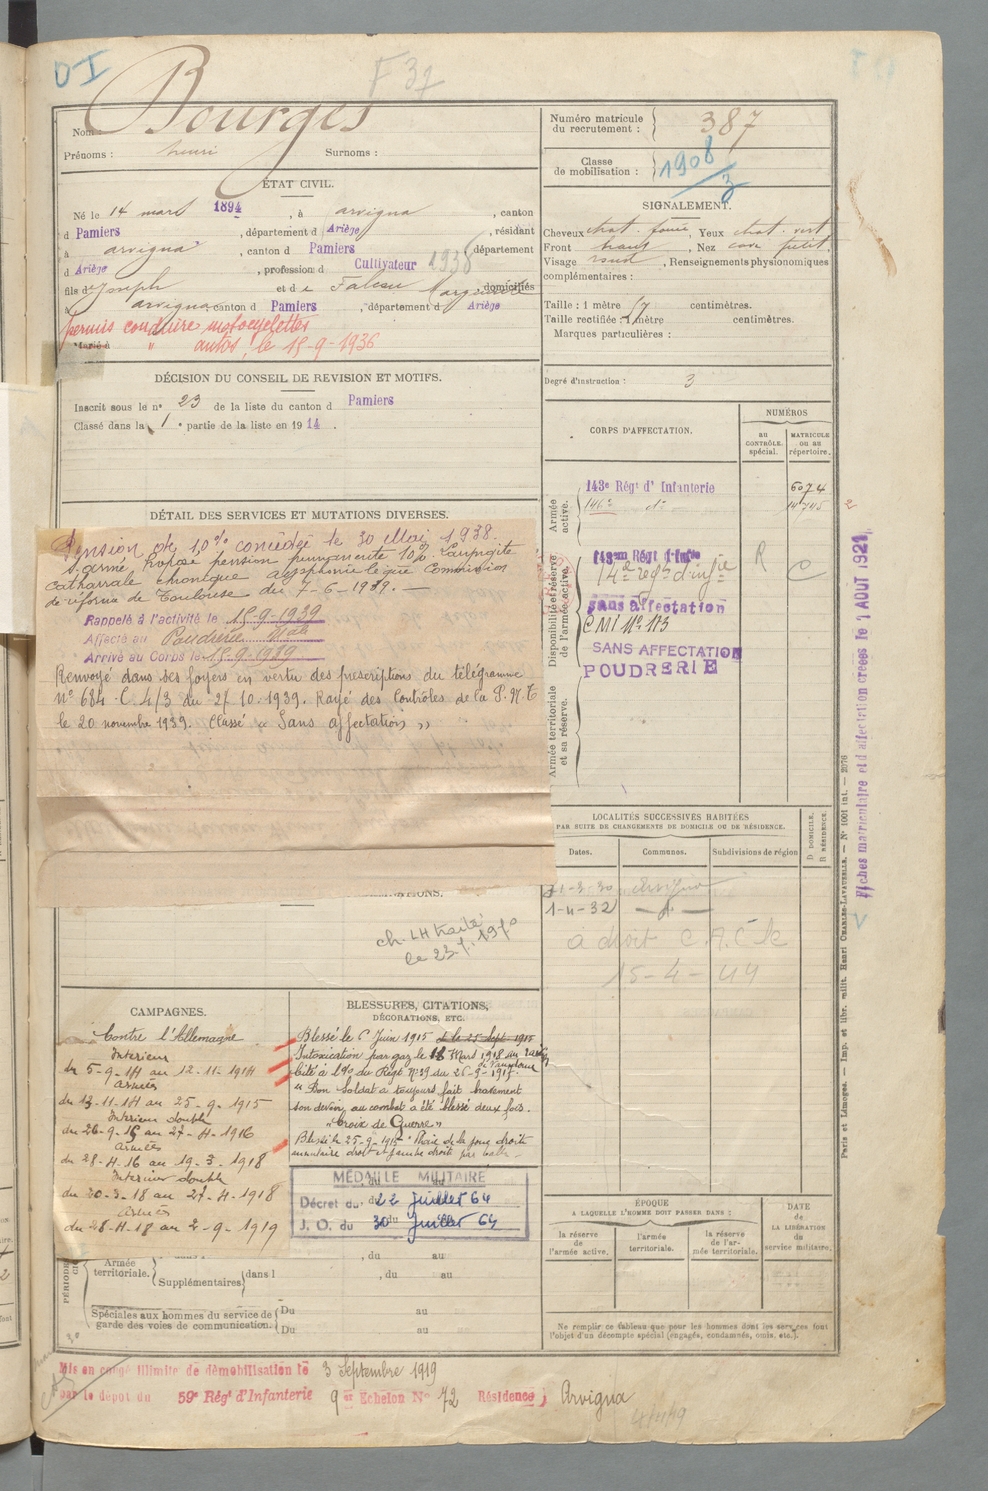 DI
F 37
Nom : Bourges
Prénoms : henri Surnoms :
ÉTAT CIVIL.
Né le 14 mars 1894, à arvigna, canton
d Pamiers, département d Ariège, résidant
à arvigna, canton d Pamiers, département
d Ariège, profession d Cultivateur 1938
fils d Joseph et de Marguerite domiciliés
à arvigna canton d Pamiers, département d Ariège
permis conduire motocyclettes
Marié à " autos, le 15-9-1936
DÉCISION DU CONSEIL DE REVISION ET MOTIFS.
Inscrit sous le n° 23 de la liste du canton d Pamiers
Classé dans la 1e partie de la liste en 1914.
DÉTAIL DES SERVICES ET MUTATIONS DIVERSES.
Pension de 10% concédée le 30 Mai 1938.
pension permanente 10% Laryngite
catharrale chronique Commission
de réforme de Toulouse du 7-6-1939.
Rappelé à l'activité le 15-9-1939
Affecté au Poudrerie Nale
Arrivé au Corps le 15.9.1939
Renvoyé dans ses foyers en vertu des prescriptions du télégramme
n° 684 C 4/3 du 27.10.1939. Rayé des Contrôles de la P.N.T
le 20 novembre 1939. Classé « Sans affectation »
ch. LH traité
Numéro matricule
du recrutement : 387
Classe
de mobilisation : 1908/3
SIGNALEMENT.
Cheveux chat. foncé, Yeux chat. vert
Front haut, Nez cave petit.
Visage rond, Renseignements physionomiques
complémentaires :
Taille : 1 mètre 67 centimètres.
Taille rectifiée : 1 mètre centimètres.
Marques particulières :
Degré d'instruction : 3
CORPS D'AFFECTATION.
NUMÉROS
au
CONTRÔLE
spécial.
MATRICULE
ou au
répertoire.
Armée
active.
143e Régt d'Infanterie 6074
146e do 14745
2
Disponibilité et réserve
de l'armée active.
143em Régt d'Infie
14e regt d'infie R C
sans affectation
CMI No 173
SANS AFFECTATION
POUDRERIE
Armée territoriale
et sa réserve.
LOCALITÉS SUCCESSIVES HABITÉES
PAR SUITE DE CHANGEMENTS DE DOMICILE OU DE RÉSIDENCE.
Dates. Communes. Subdivisions de région
D. DOMICILE.
R. RÉSIDENCE.
arvigna
1-4-32 - d° -
à droit C.A.C le
15-4-44
CAMPAGNES.
Contre l'Allemagne
Intérieur
du 5-9-14 au 12-11-1914
armées
du 13-11-14 au 25-9-1915
Intérieur double
du 26-9-15 au 27-4-1916
armées
du 28-4-16 au 19-3-1918
Intérieur double
du 20-3-18 au 27-4-1918
armées
du 28-4-18 au 2-9-1919
BLESSURES, CITATIONS,
DÉCORATIONS, ETC.
Blessé le 6 Juin 1915 et le 25 Sept 1915
Intoxication par gaz le 18 Mars 1918 au
Cité à l'Ordre du Régt N° 39 du 26-9-1917.
« Bon Soldat a toujours fait bravement
son devoir, au combat a été blessé deux fois.
« Croix de Guerre »
Blessé le 25-9-1915 "Plaie de la joue droite
MÉDAILLE MILITAIRE
Décret du 22 juillet 64
J. O. du 30 juillet 64
, du au
Armée
territoriale.
Supplémentaires dans l , du au
Spéciales aux hommes du service de
garde des voies de communication.
Du au
Du au
ÉPOQUE
A LAQUELLE L'HOMME DOIT PASSER DANS :
la réserve
de
l'armée active.
l'armée
territoriale.
la réserve
de l'ar-
mée territoriale.
DATE
de
LA LIBÉRATION
du
service militaire.
Ne remplir ce tableau que pour les hommes dont les services font
l'objet d'un décompte spécial (engagés, condamnés, omis, etc.).
Mis en congé illimité de démobilisation le 3 Septembre 1919
par le dépôt du 59e Régt d'Infanterie 9 er Echelon N° 72 Résidence, Arvigna
Fiches matriculaire et d'affectation créées le 1 AOUT 1921.
Paris et Limoges. — Imp. et libr. milit. Henri CHARLES-LAVAUZELLE. — N° 1001 int. — 2076